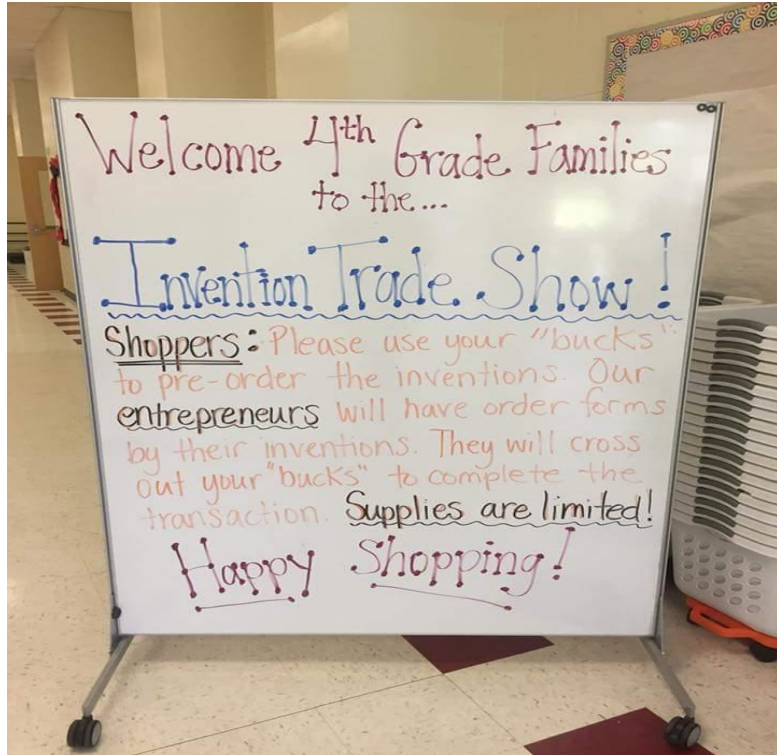 Welcome 4th Grade Families
to the...
Invention Trade Show!
Shoppers: Please use your "bucks"
to pre-order the inventions. Our
entrepreneurs will have order forms
by their inventions. They will cross
out your "bucks" to complete the
transaction. Supplies are limited!
Happy Shopping!